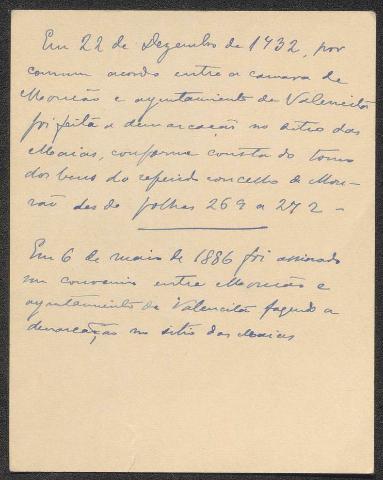 Em 22 de Dezembro de 1432, por
comum acordo entre a camara de
Mourão e ayuntamiento de Valencita
foi feita a demarcação no sitio das
Maias, conforme consta do tomo
dos bens do referido concelho de Mou-
rão desde folhas 269 a 272 -
Em 6 de maio de 1886 foi assinado
um convenio entre Mourão e
ayuntamiento de Valencita fazendo a
demarcação no sitio das Maias